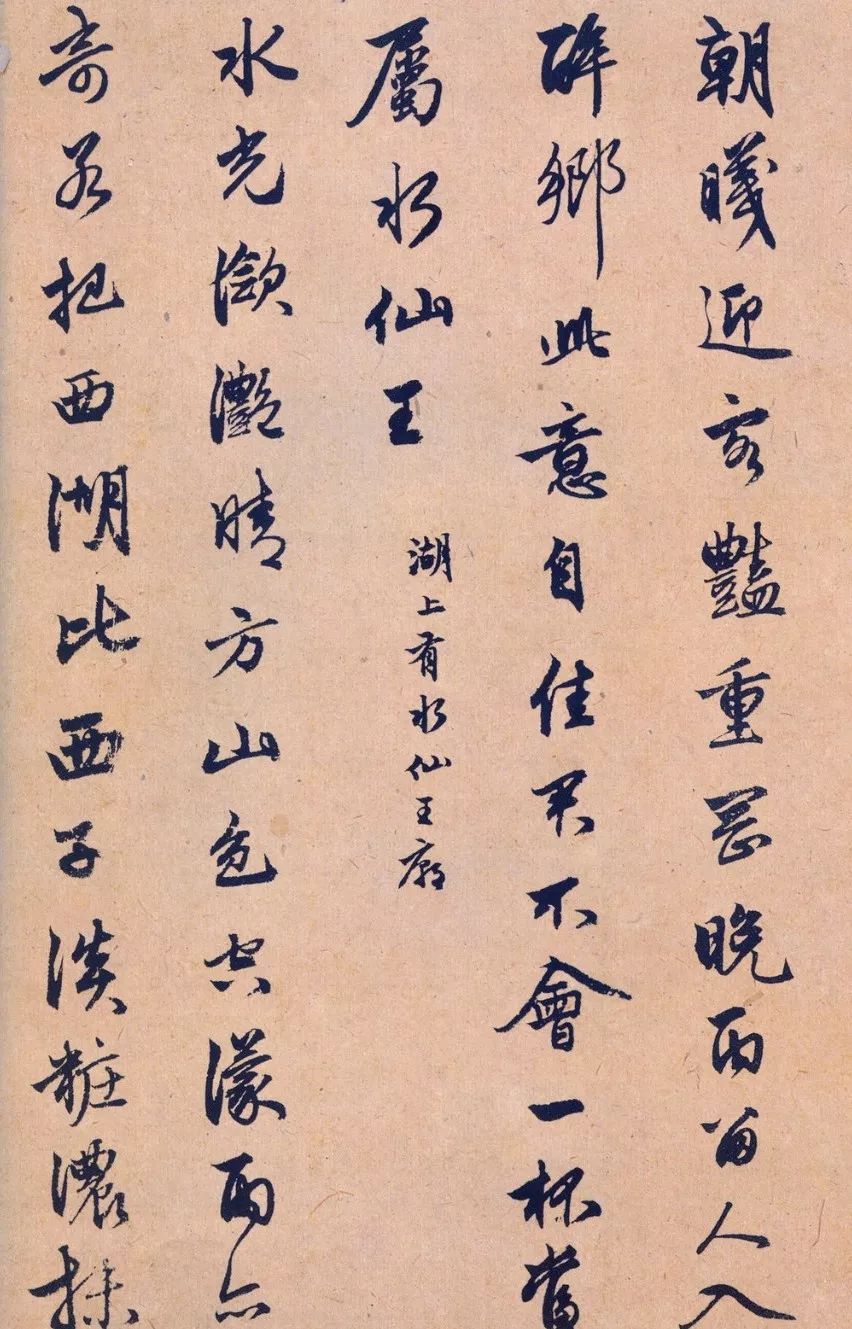 朝曦迎客豔重岡晚雨留人入
醉鄉此意自佳君不會一杯當
屬水仙王
湖上有水仙王廟
水光瀲灔晴方山色空濛雨亦
奇若把西湖比西子淡粧濃抹